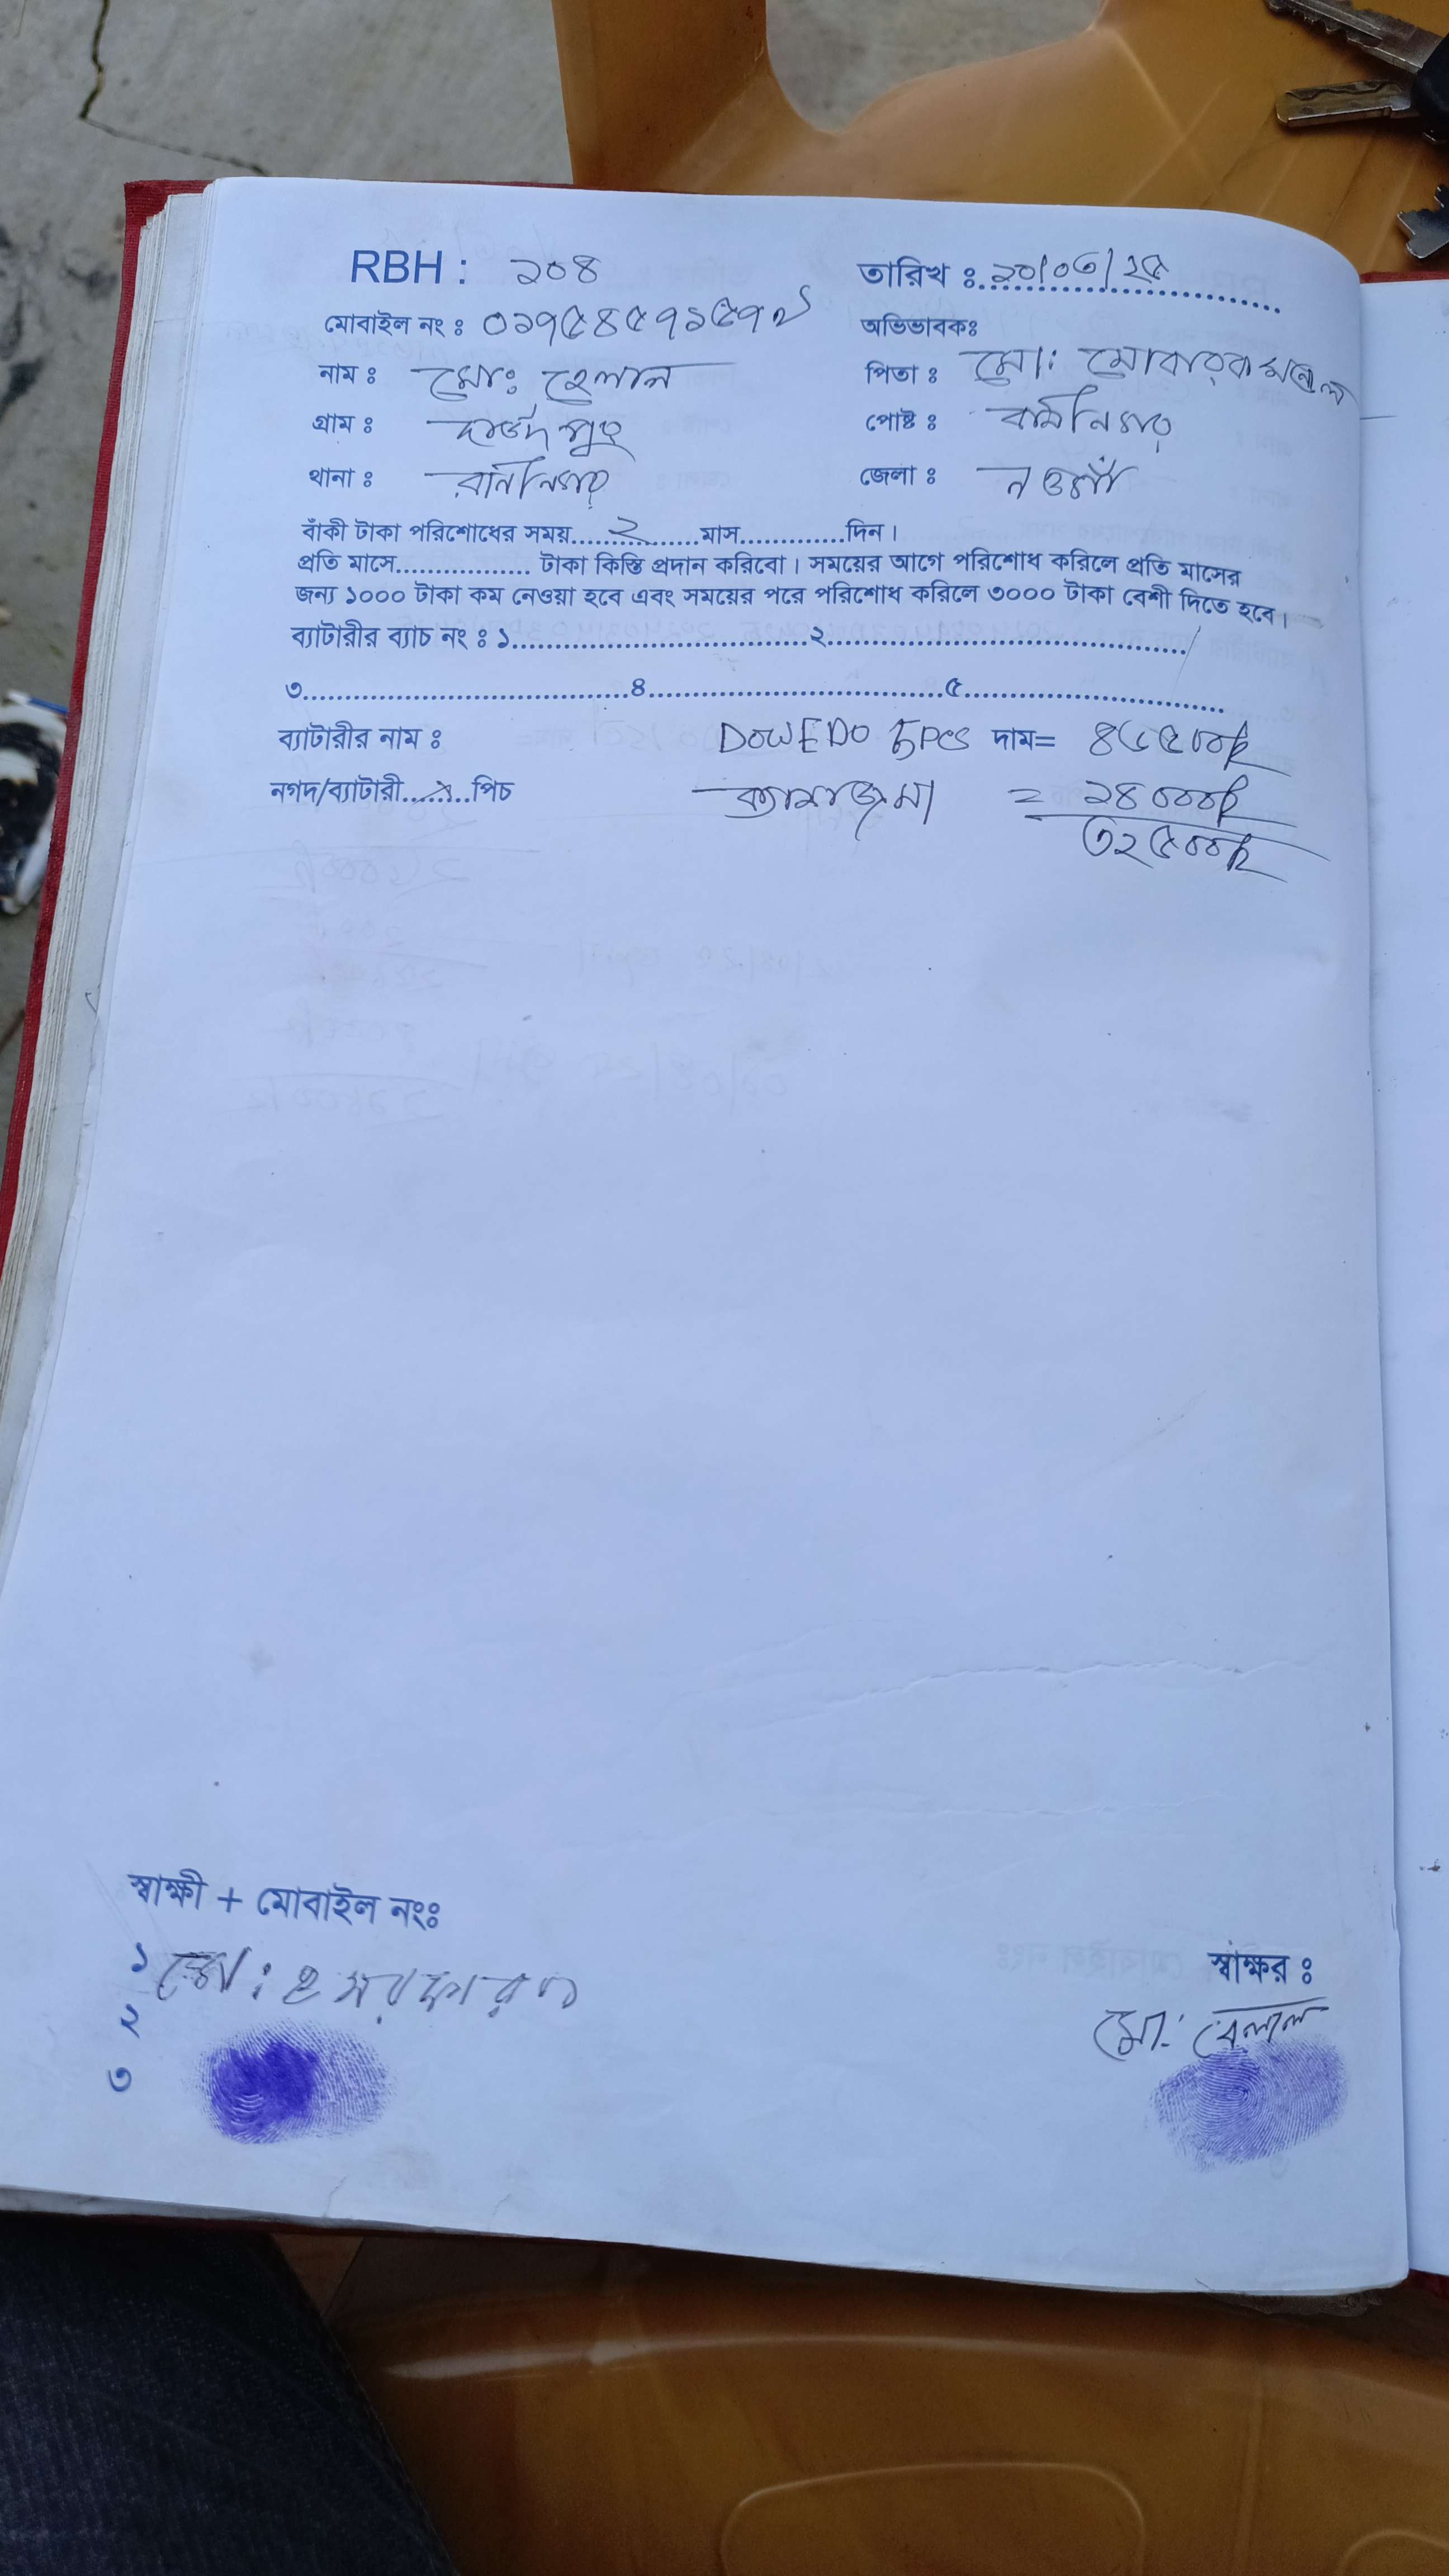 RBH : ২০৪ তারিখ ঃ ২০/০৩/২৫
মোবাইল নং ঃ ০১৭৫৪৫৭১৫৭৮ অভিভাবকঃ
নাম ঃ মোঃ হেলাল পিতা ঃ মো: মোবারক
গ্রাম ঃ দাউদপুর পোষ্ট ঃ
থানা ঃ রানীনগর জেলা ঃ নওগাঁ
বাঁকী টাকা পরিশোধের সময়.......২.......মাস.............দিন।
প্রতি মাসে................ টাকা কিস্তি প্রদান করিবো। সময়ের আগে পরিশোধ করিলে প্রতি মাসের
জন্য ১০০০ টাকা কম নেওয়া হবে এবং সময়ের পরে পরিশোধ করিলে ৩০০০ টাকা বেশী দিতে হবে।
ব্যাটারীর ব্যাচ নং ঃ ১....................................২............................................
৩........................................৪....................................৫................................
ব্যাটারীর নাম ঃ DOWEDO 5PCS দাম= ৪৬৫০০/
নগদ/ব্যাটারী........পিচ জমা = ১৪০০০/
৩২৫০০/
স্বাক্ষী + মোবাইল নংঃ
১ মো:
২
৩
স্বাক্ষর ঃ
মো: হেলাল